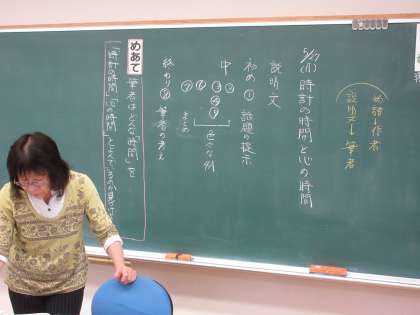 物語→作者
説明文→筆者
5/17(火) 時計の時間と心の時間
説明文
初め① 話題の提示
中
②③④⑤⑥⑦
色々な例
まとめ
終わり⑧ 筆者の考え
めあて
筆者はどんな「時間」を
「時計の時間」「心の時間」とよんでいるのか